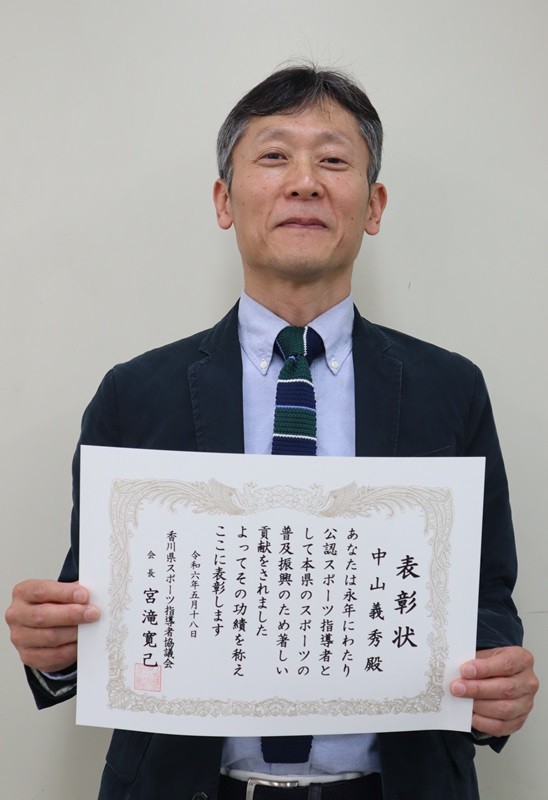 表彰状
中山義秀殿
あなたは永年にわたり
公認スポーツ指導者と
して本県のスポーツの
普及振興のため著しい
貢献をされました
よってその功績を称え
ここに表彰します
令和六年五月十八日
香川県スポーツ指導者協議会
会長 宮滝寛己